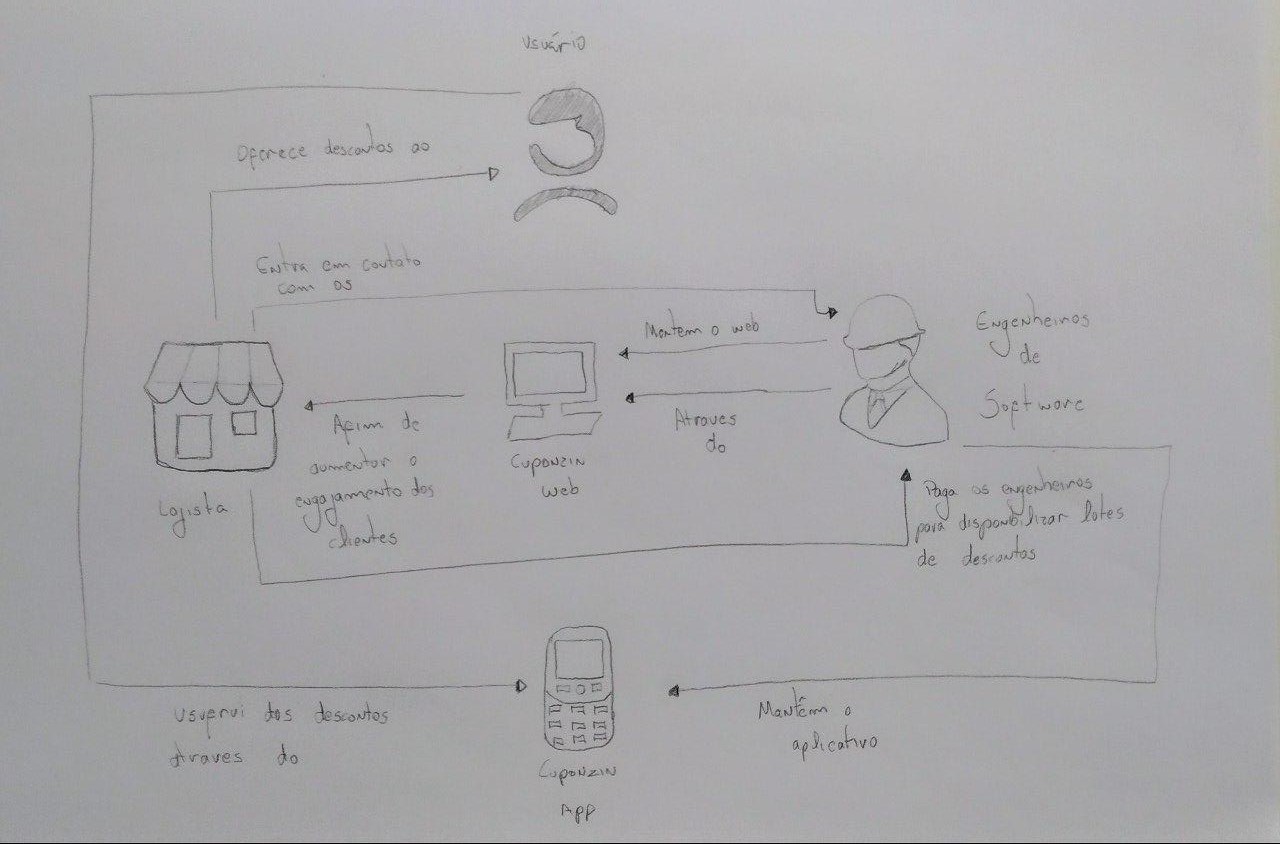 Usuário
Oferece descontos ao
Entra em contato
com os
Mantem o web
Engenheiros
de
Software
Atraves
do
Afim de
aumentar o
engajamento dos
clientes
Cuponzin
web
Lojista
Paga os engenheiros
para disponbilizar lotes
de descontos
Usufrui dos descontos
Atraves do
Mantêm o
aplicativo
Cuponzin
App